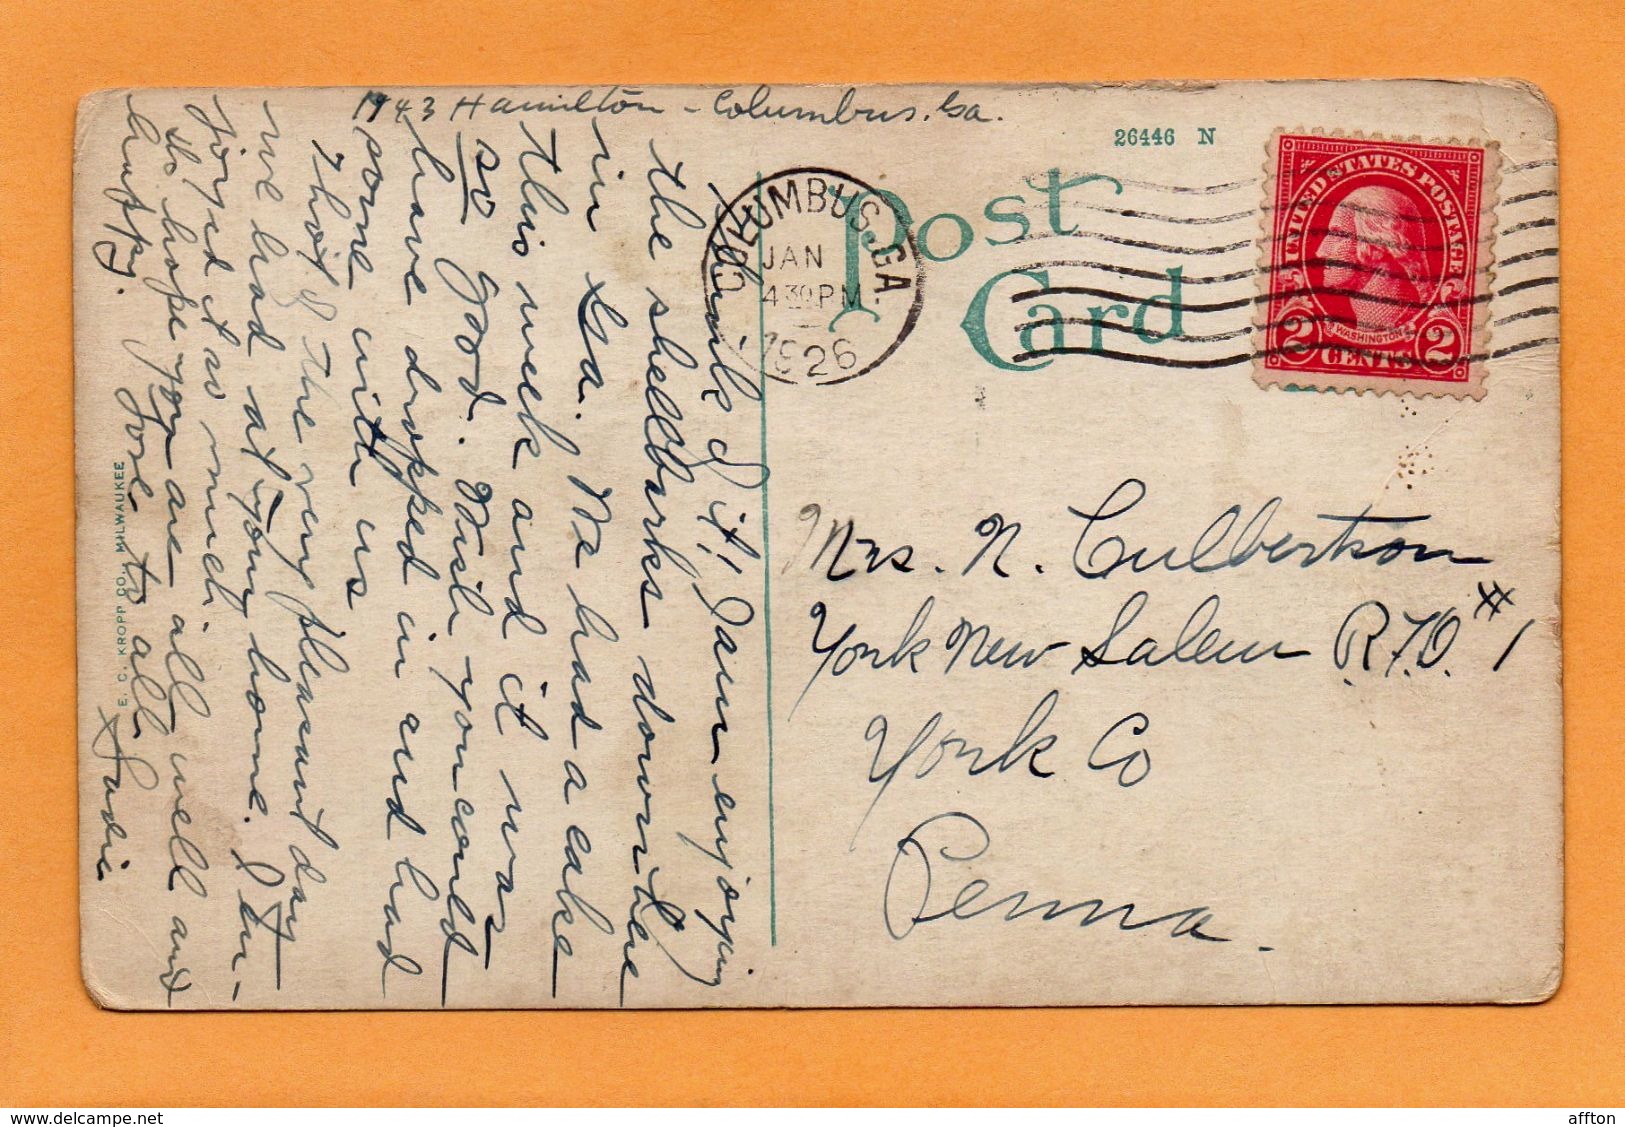 1943 Hamilton - Columbus. Ga.
26446 N
Post
Card
COLUMBUS, GA.
JAN
4 30 PM
1926
UNITED STATES POSTAGE
WASHINGTON
2 CENTS 2
Think of it! I am enjoying
the shellbarks down here
in Ga. We had a cake
this week and it was
so good. Wish you could
have dropped in and had
some with us
Thot of the very pleasant day
we had at your home. I en-
joyed it so much
Do hope you are all well and
happy. Love to all
Sadie
E. C. KROPP CO., MILWAUKEE
Mrs. N. Culbertson
York New Salem R.F.D. #1
York Co
Penna.
delcampe.net
affton